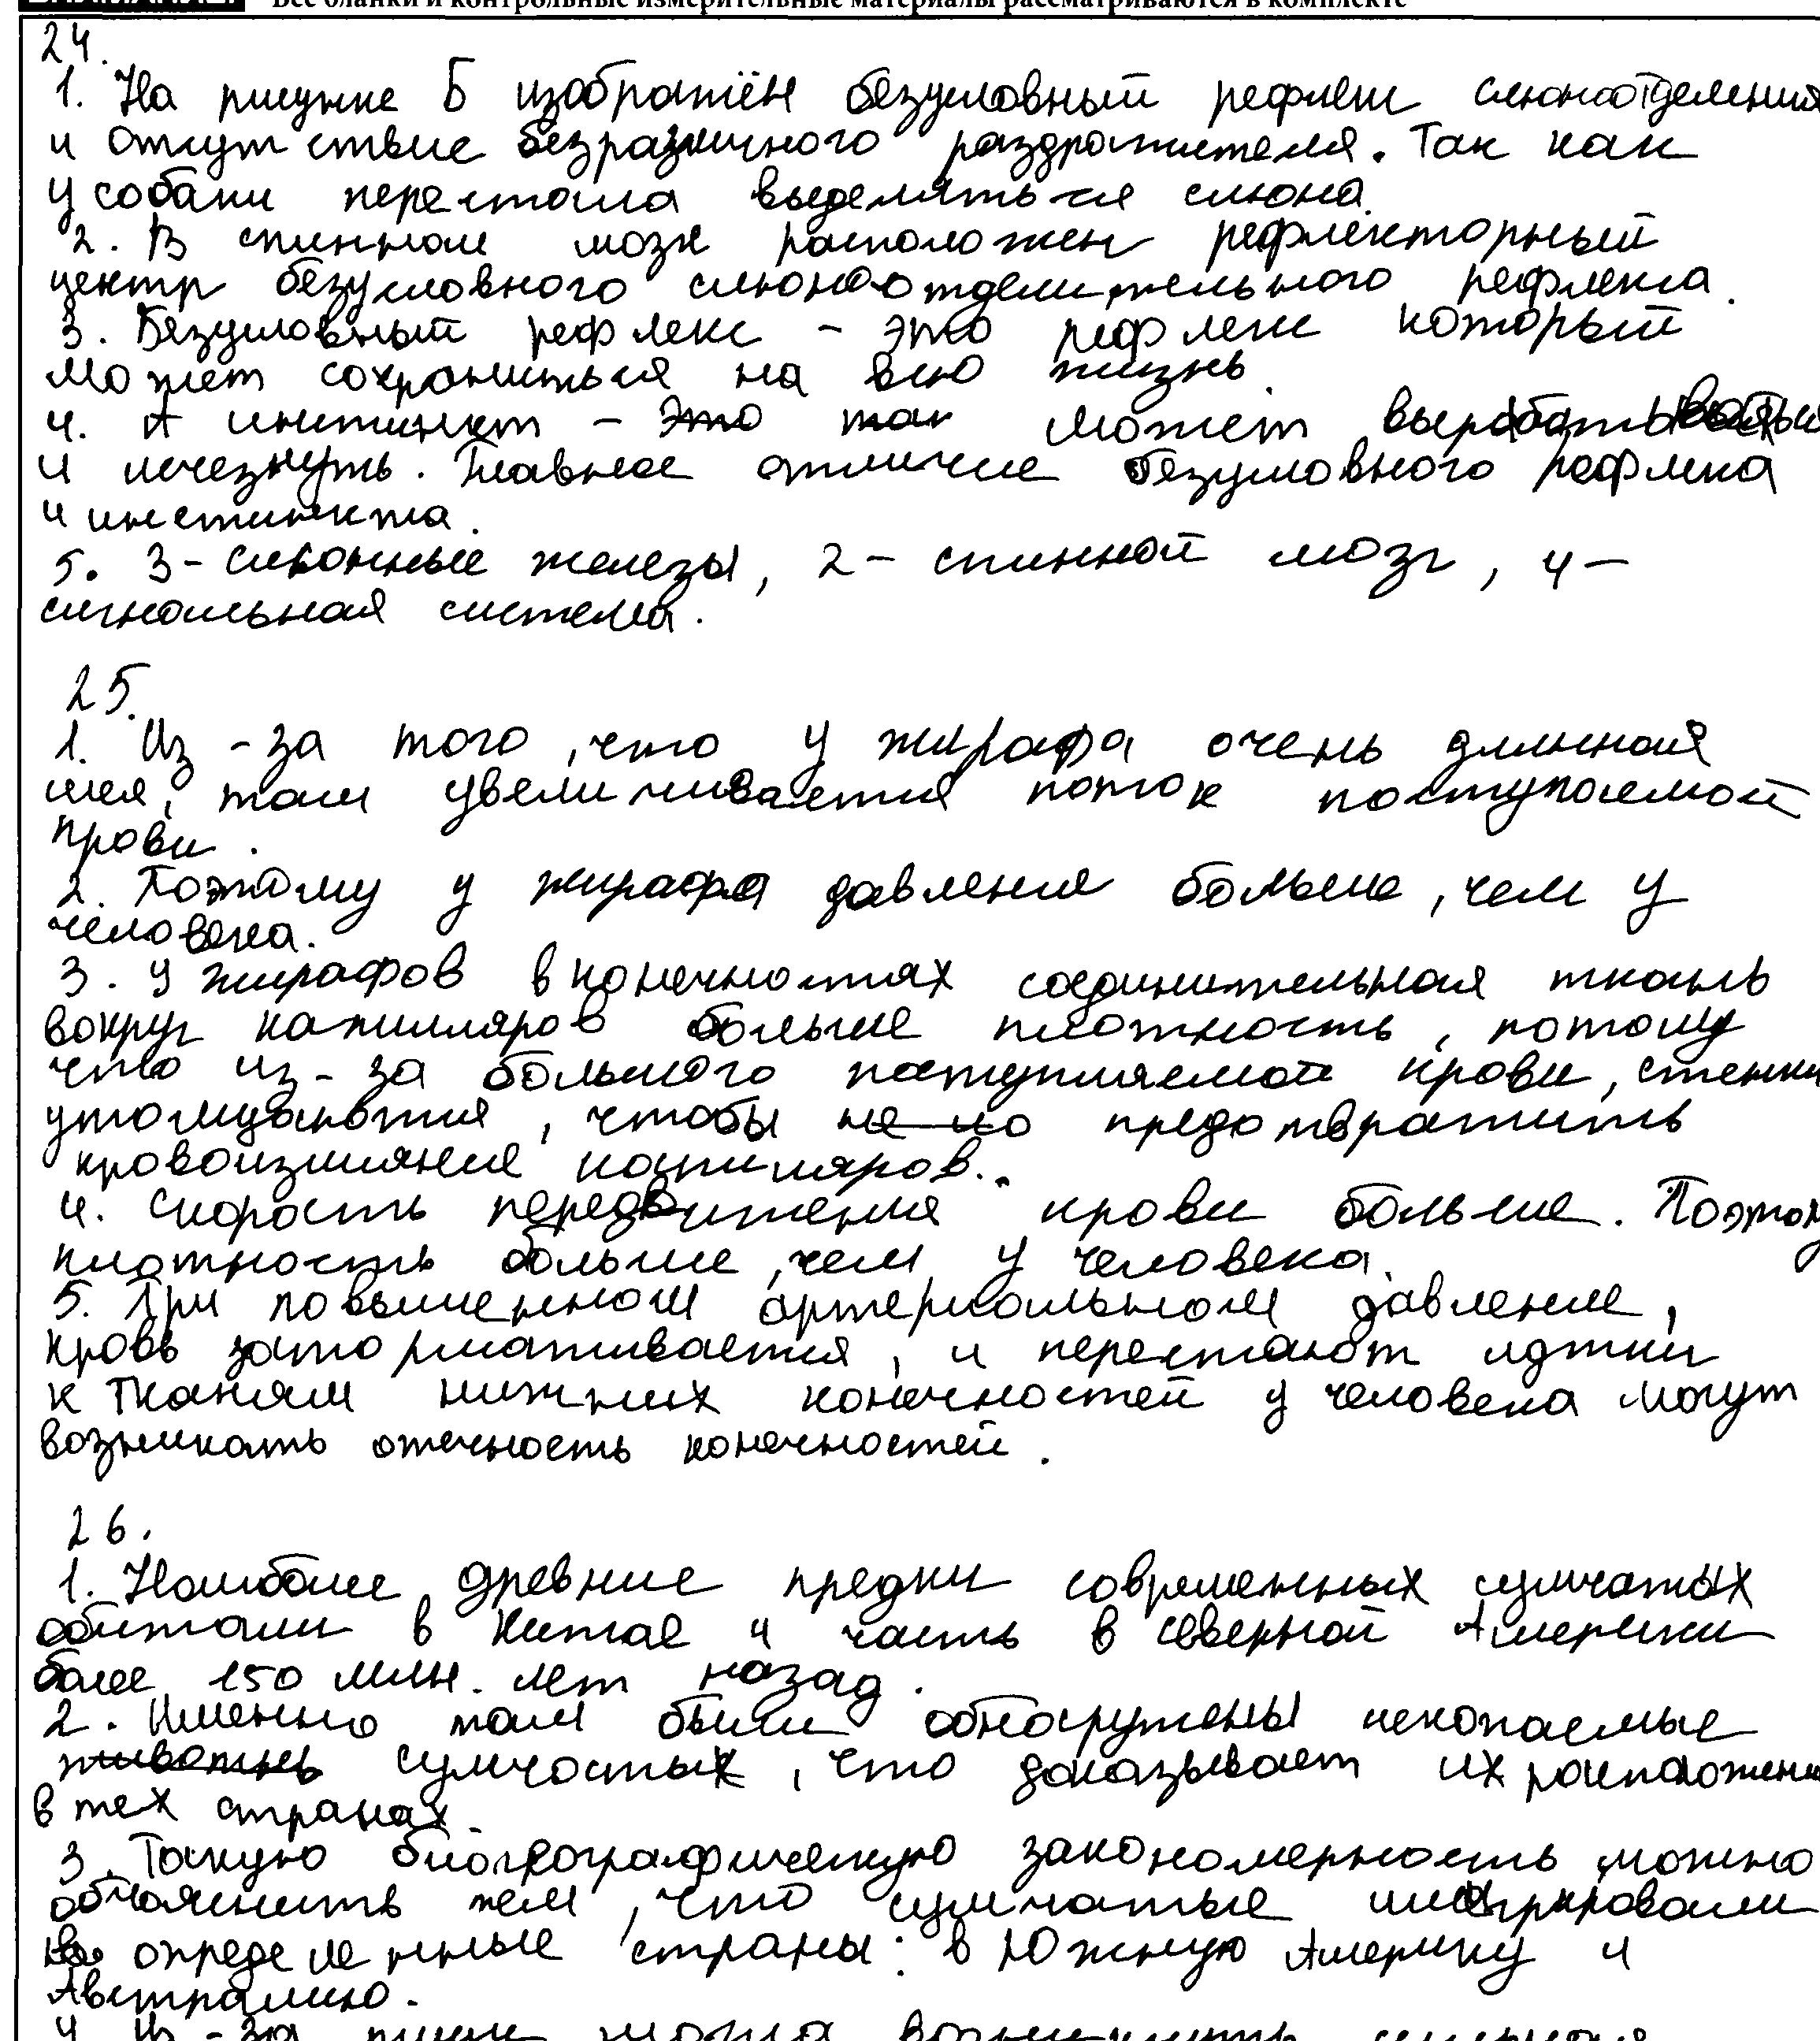 Все бланки и контрольные измерительные материалы рассматриваются в комплекте
24.
1. На рисунке Б изображён безусловный рефлекс слюноотделения
и отсутствие безразличного раздражителя. Так как
у собаки перестала выделяться слюна.
2. В спинном мозк расположен рефлекторный
центр безусловного слюноотделительного рефлекса.
3. Безусловный рефлекс - это рефлекс который
может сохраниться на всю жизнь.
4. А инстинкт - это так может вырабатываться
и исчезнуть. Главное отличие безусловного рефлекса
и инстинкта.
5. 3- слюнные железы, 2- спинной мозг, 4-
сигнальная система.
25.
1. Из-за того, что у жирафа очень длинная
шея, там увеличивается поток поступаемой
крови.
2. Поэтому у жирафа давление больше, чем у
человека.
3. У жирафов в конечностях соединительная ткань
вокруг капилляров больше плотность, потому
что из-за большого поступляемой крови, стенки
утолщаются, чтобы не но предотвратить
кровоизлияние капиляров.
4. Скорость передвижения крови больше. Поэтому
плотность больше, чем у человека.
5. При повышенном артериальном давление,
кровь затормаживается, и перестают идтии
к тканям нижних конечностей у человека могут
возникать отечность конечностей.
26.
1. Наиболее древние предки современных сумчатых
обитали в Китае и часть в северной Америки
более 150 млн. лет назад.
2. Именно там были обнаружены ископаемые
животны сумчатых, что доказывает их расположение
в тех странах.
3. Такую биогеографическую закономерность можно
объяснить тем, что сумчатые мигрировали
на определенные страны: в Южную Америку и
Австралию.
4. Из-за могла возникнуть